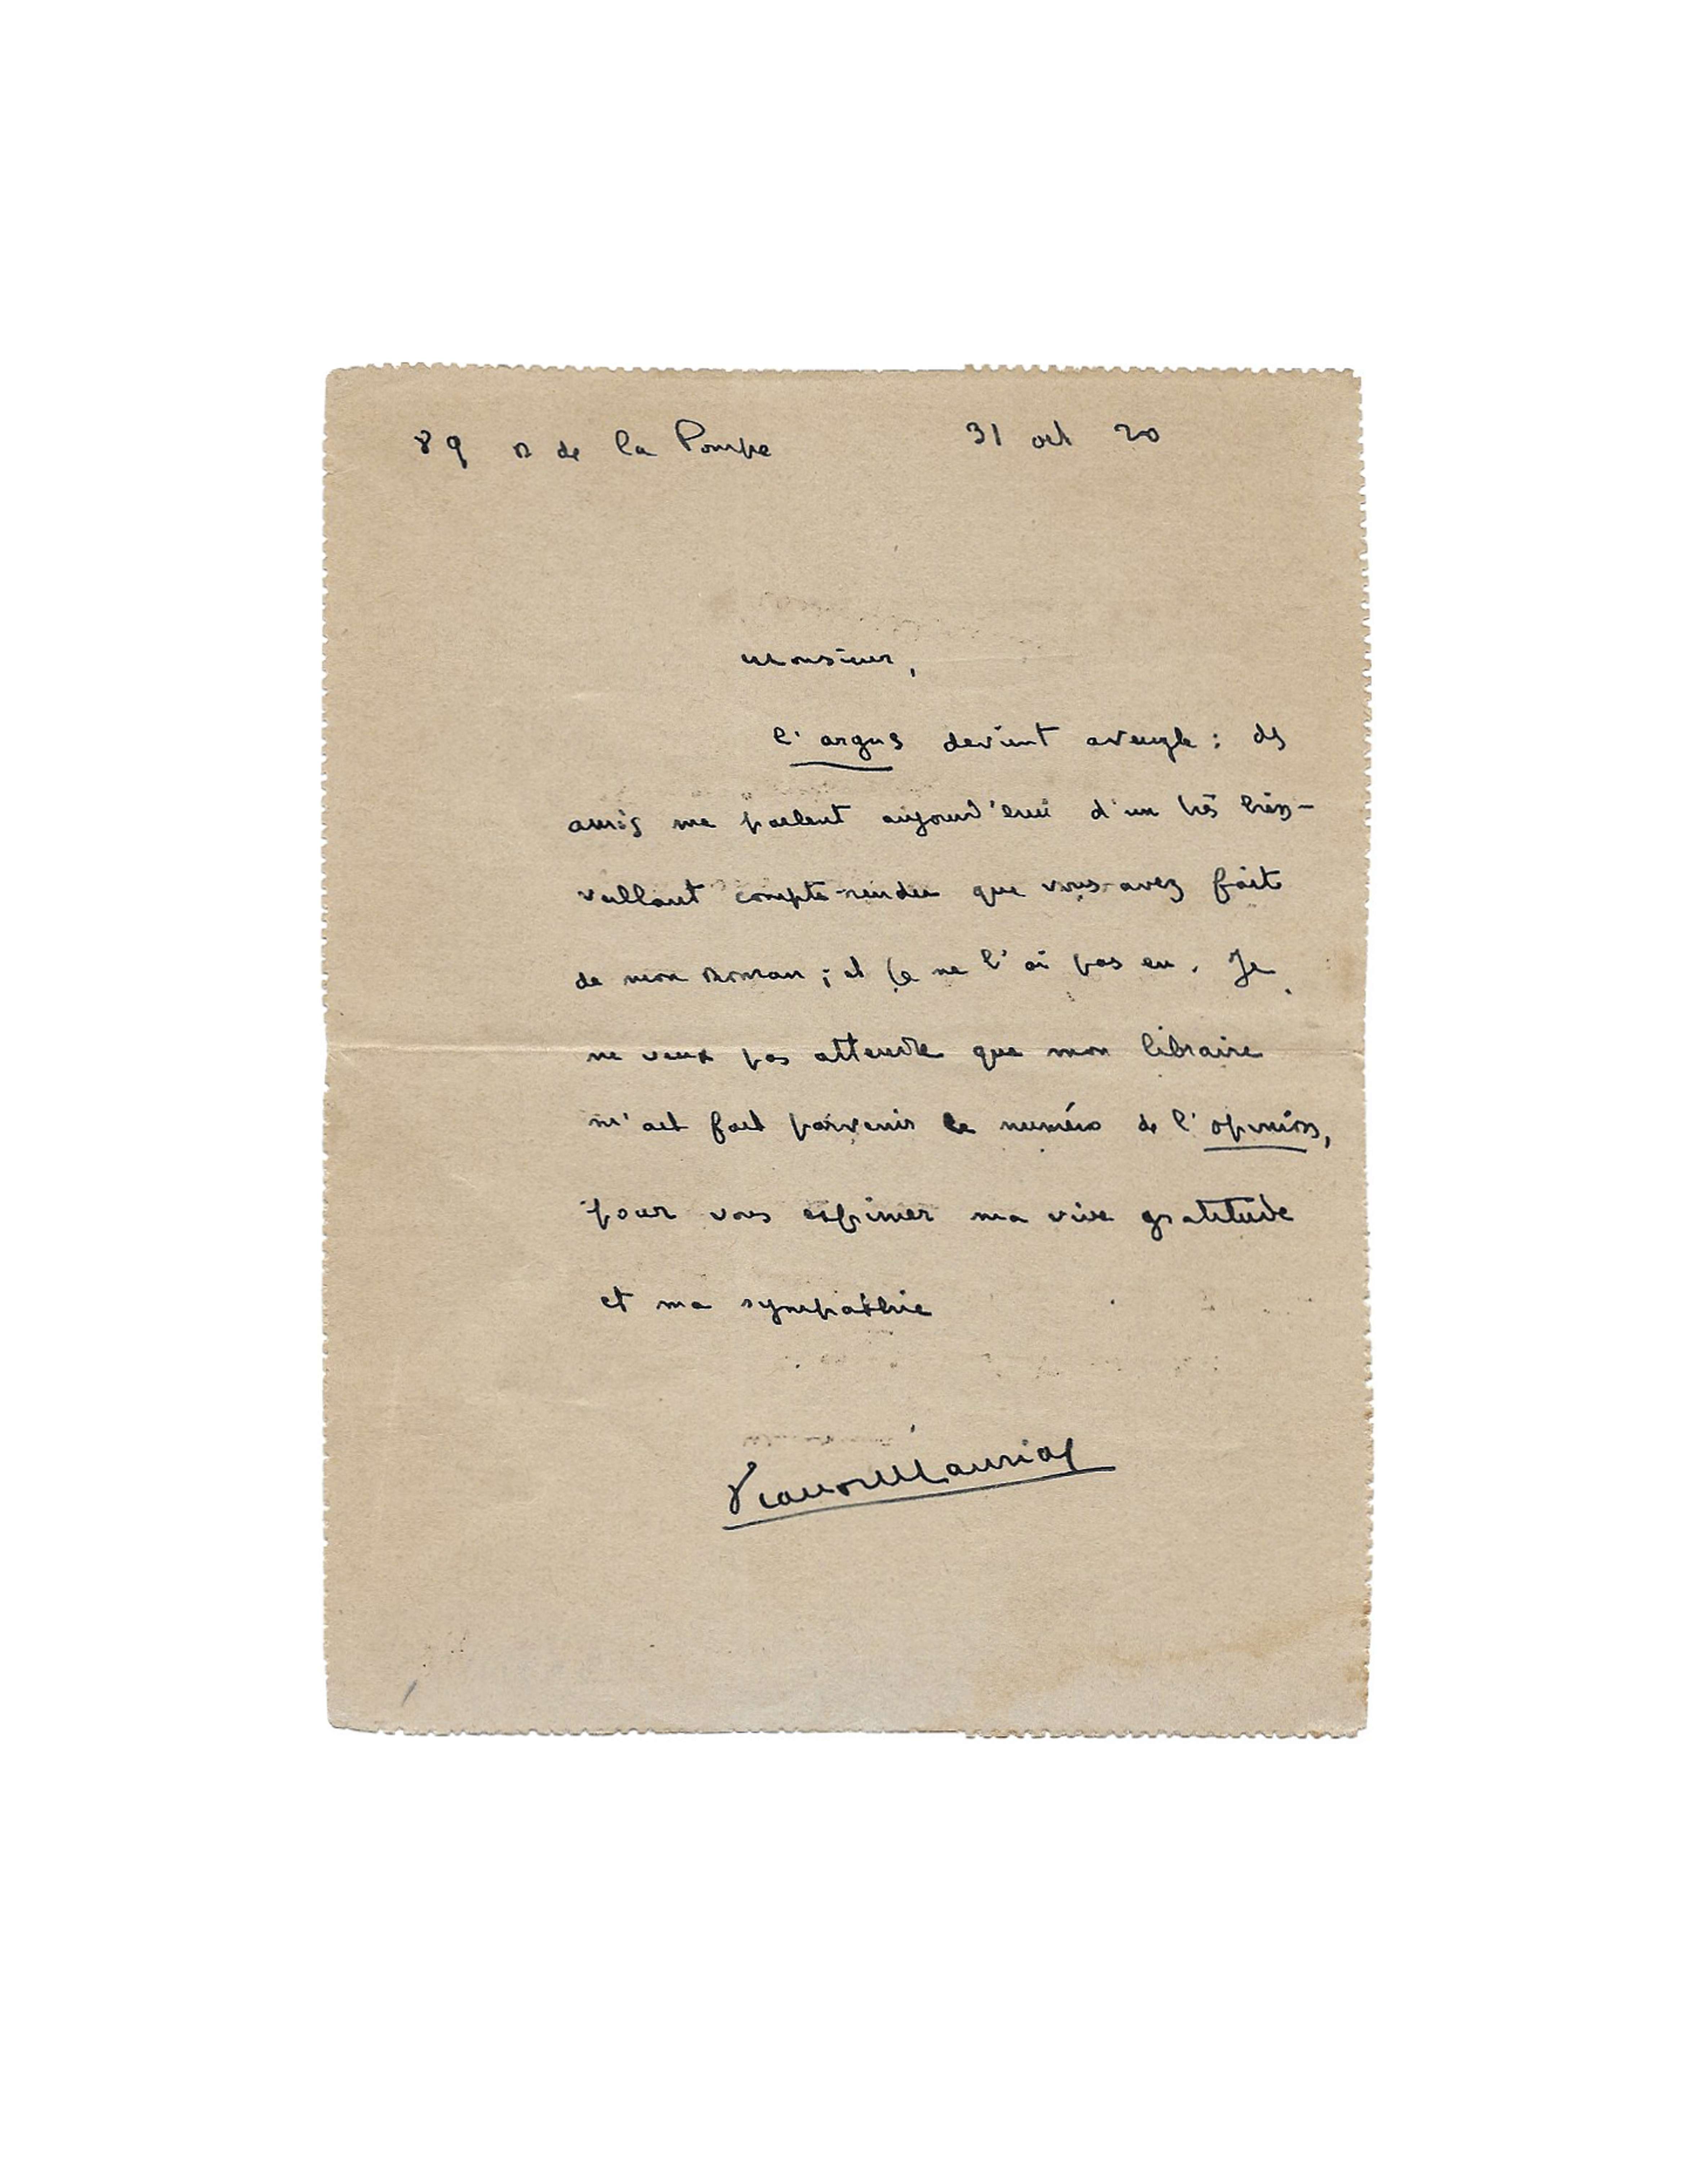 89 r de la Pompe 31 oct 20
Monsieur,
l'argus devient aveugle : des
amis me parlent aujourd'hui d'un très bien-
veillant compte-rendu que vous avez fait
de mon roman ; et je ne l'ai pas eu. Je
ne veux pas attendre que mon libraire
m'ait fait parvenir le numéro de l'opinion,
pour vous exprimer ma vive gratitude
et ma sympathie
François Mauriac